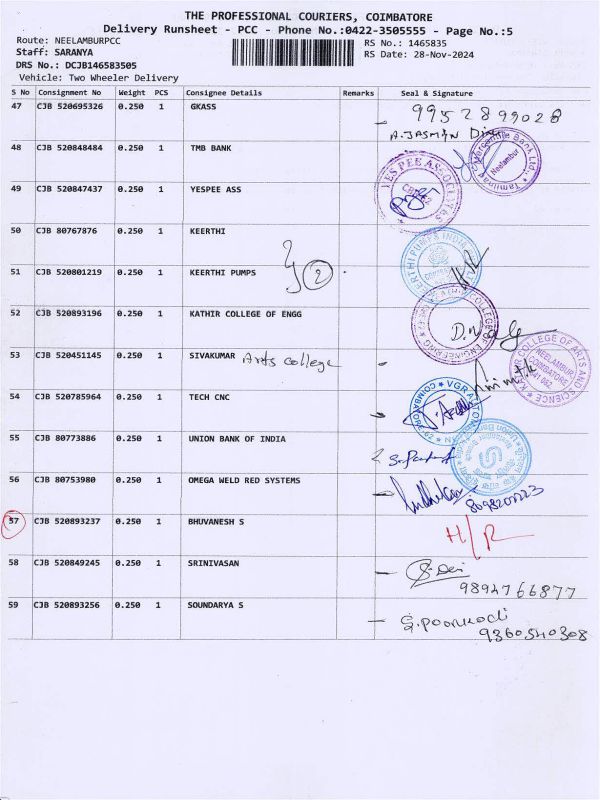 THE PROFESSIONAL COURIERS, COIMBATORE
Delivery Runsheet - PCC - Phone No.:0422-3505555 - Page No.:5
Route: NEELAMBURPCC
RS No.: 1465835
Staff: SARANYA
RS Date: 28-Nov-2024
DRS No.: DCJB146583505
Vehicle: Two Wheeler Delivery
S No Consignment No Weight PCS Consignee Details Remarks Seal & Signature
47 CJB 520695326 0.250 1 GKASS
9952899028
A.JASMAN
48 CJB 520848484 0.250 1 TMB BANK
Neelambur
49 CJB 520847437 0.250 1 YESPEE ASS
YES PEE ASSOCIATES
50 CJB 80767876 0.250 1 KEERTHI
2
51 CJB 520801219 0.250 1 KEERTHI PUMPS
52 CJB 520893196 0.250 1 KATHIR COLLEGE OF ENGG
53 CJB 520451145 0.250 1 SIVAKUMAR Arts college
COLLEGE OF ARTS AND SCIENCE
NEELAMBUR
COIMBATORE
641 062
54 CJB 520785964 0.250 1 TECH CNC
55 CJB 80773886 0.250 1 UNION BANK OF INDIA
56 CJB 80753980 0.250 1 OMEGA WELD RED SYSTEMS
57 CJB 520893237 0.250 1 BHUVANESH S
H/R
58 CJB 520849245 0.250 1 SRINIVASAN
9894766877
59 CJB 520893256 0.250 1 SOUNDARYA S
S.poorkodi
9360540308